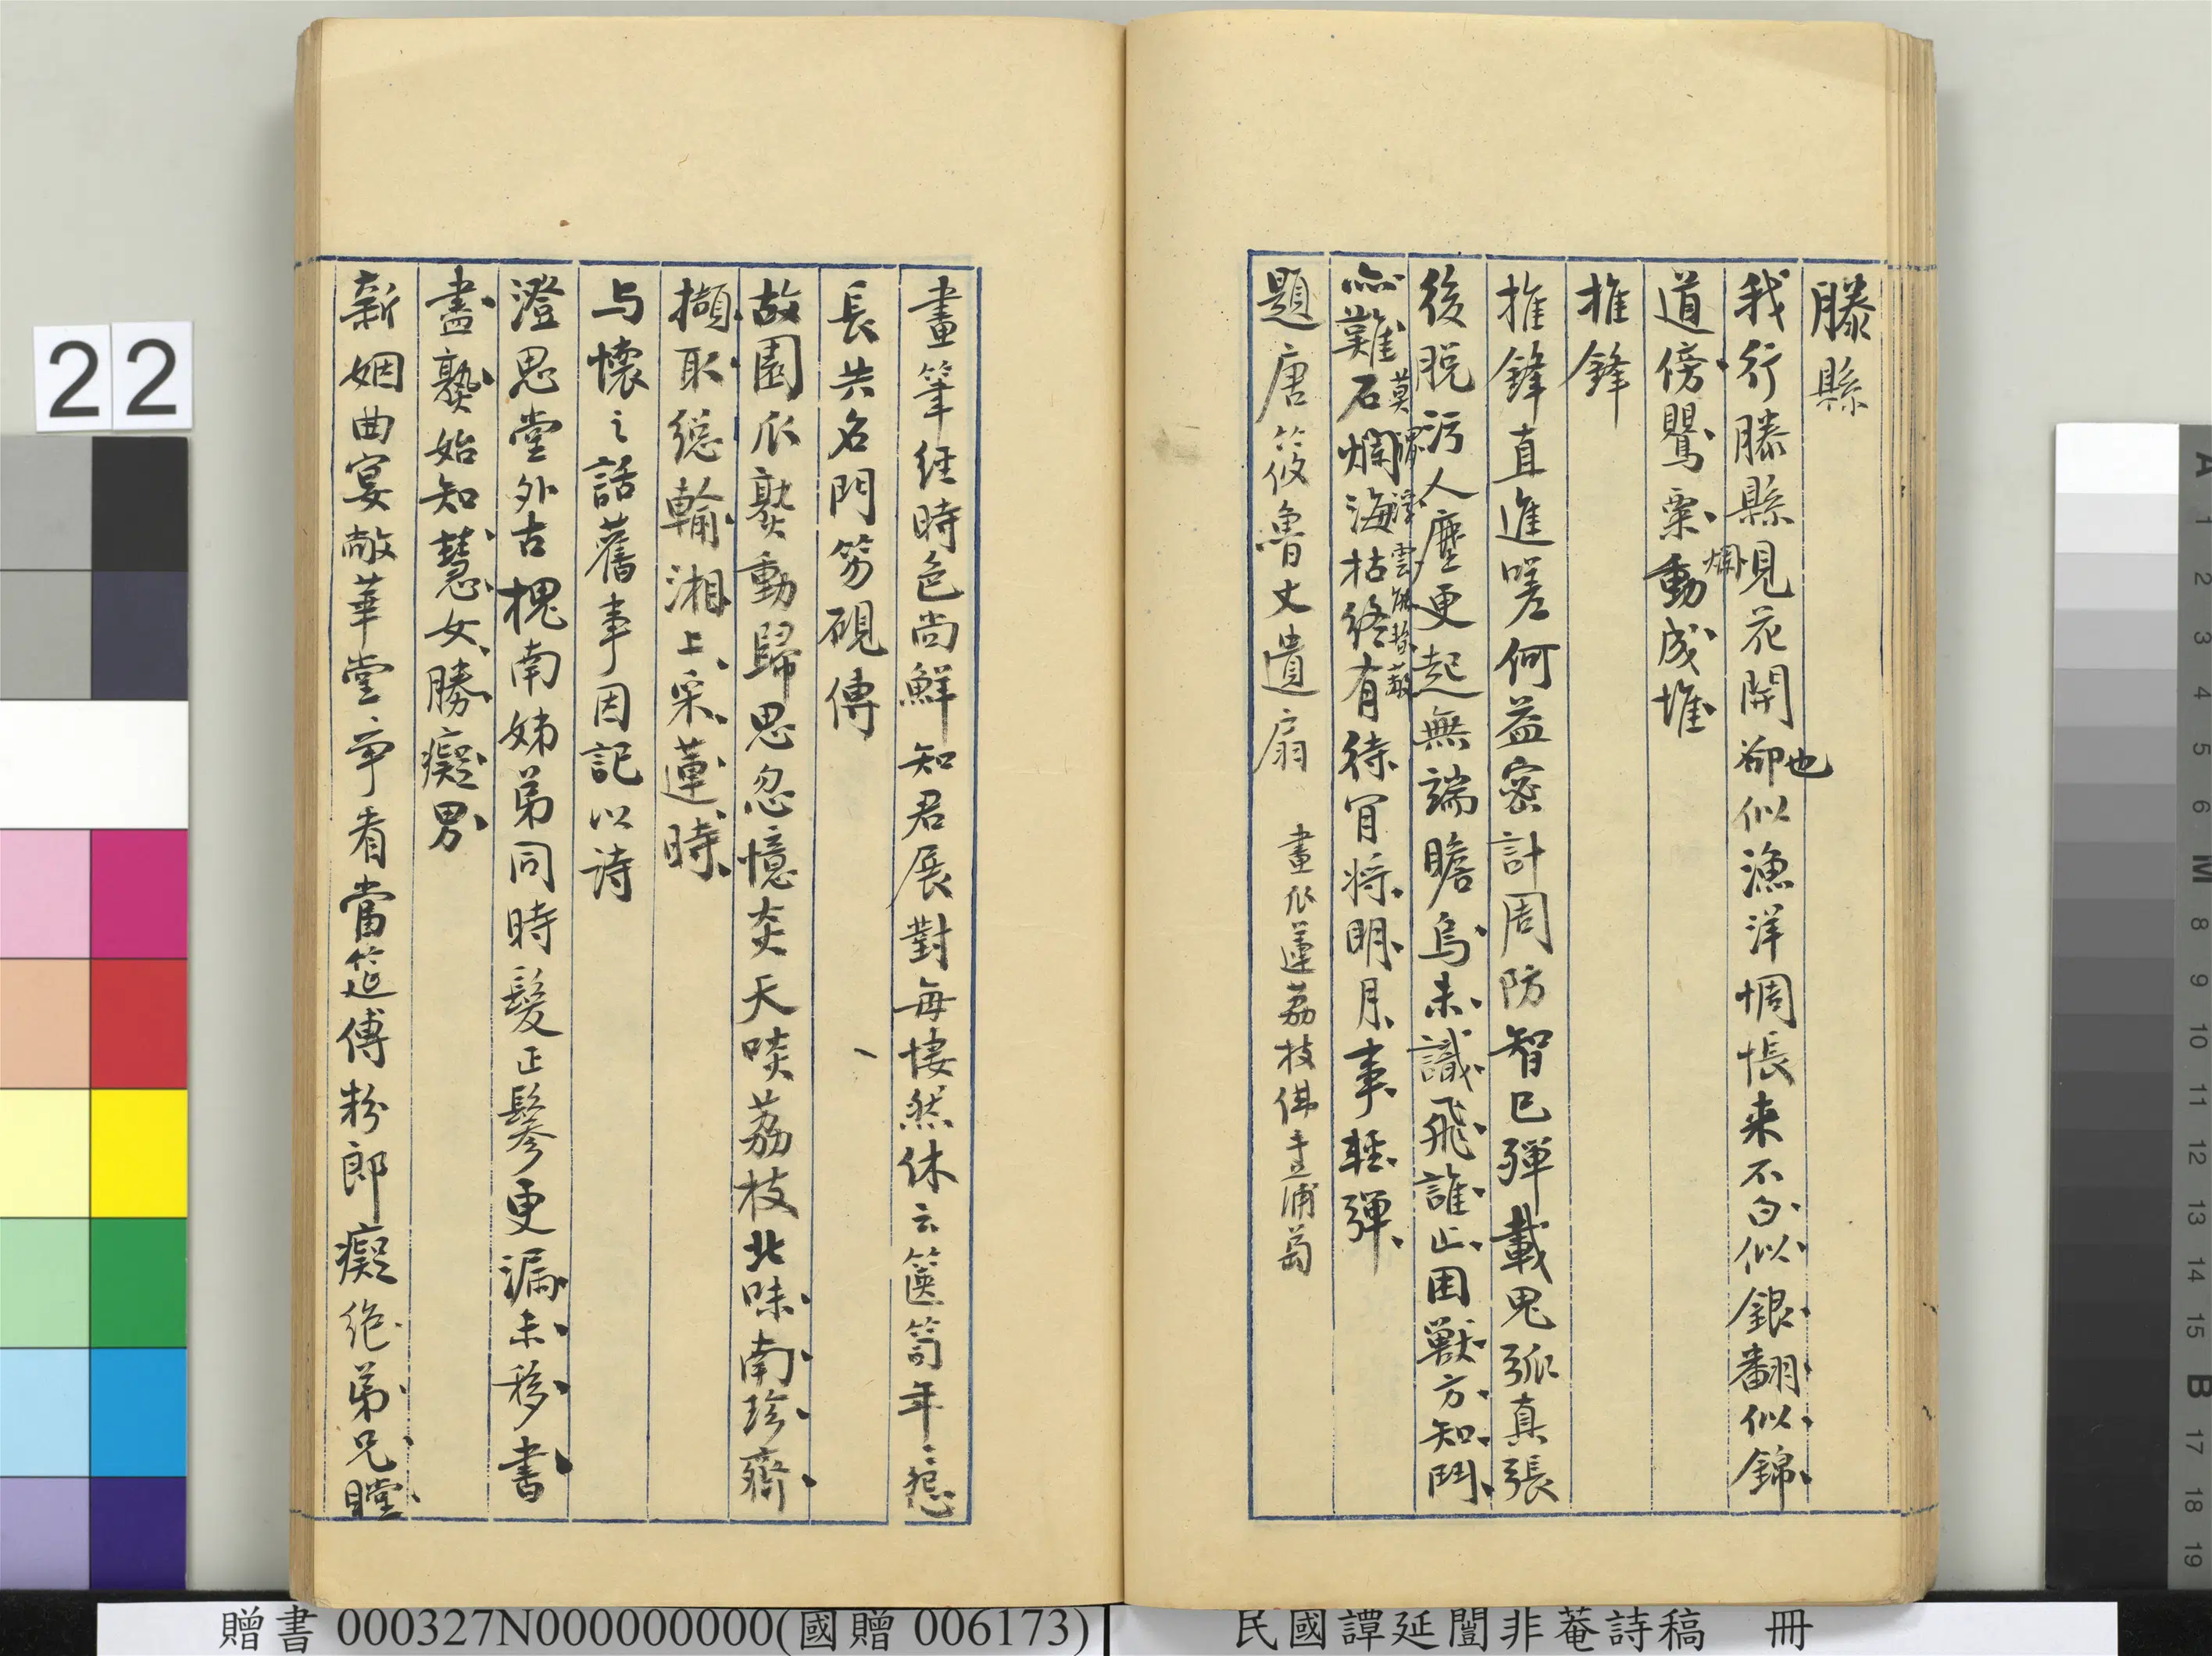 滕縣
我行滕縣見花開卻似漁洋惆悵來不白似銀翻似錦
也
爛
道傍鸎粟動成堆
推鋒
推鋒直進嗟何益密計周防智已殫載鬼弧真張
後脫污人塵更起無端瞻烏未識飛誰止困獸方知鬥
亦難石爛海枯終有待冐將明月事輕彈
莫謂浮雲能
題唐筱魯丈遺扇 畫瓜蓮荔枝佛手蒲萄
畫筆經時色尚鮮知君展對每悽然休云篋笥年〻怨
長共名門笏硯傳
故園瓜熟動歸思忽憶炎天啖荔枝北味南珍齊
擷取總輸湘上采蓮時
与懷之話舊事因記以詩
澄思堂外古槐南姊弟同時髮正鬖更漏未移書
盡熟始知慧女勝癡男
新姻曲宴敞華堂爭看當筵傅粉郎癡絕弟兄瞠
22
贈書 000327N000000000(國贈 006173)
民國譚延闓非菴詩稿 冊
A 1 2 3 4 5 6 M 8 9 10 11 12 13 14 15 B 17 18 19